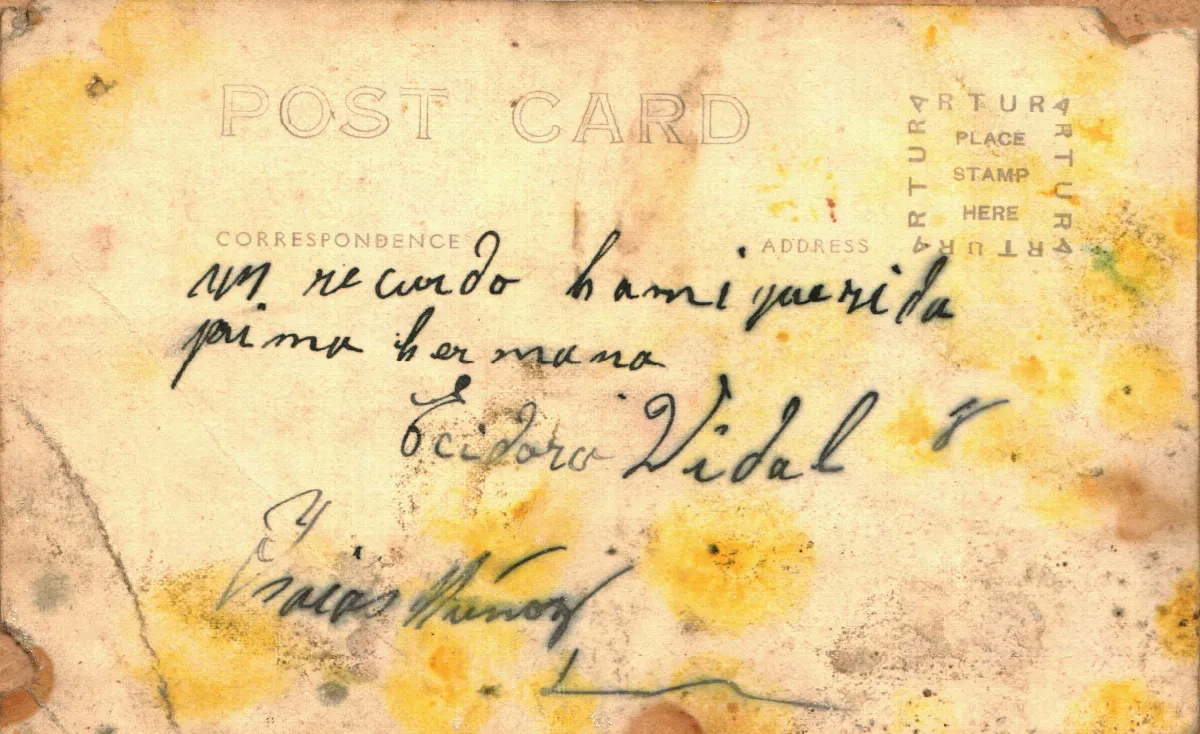 POST CARD
ARTURA
ARTURA
ARTURA
ARTURA
PLACE
STAMP
HERE
CORRESPONDENCE
ADDRESS
un recuerdo ha mi querida
prima hermana
Ecidora Vidal
Isaias Muñoz